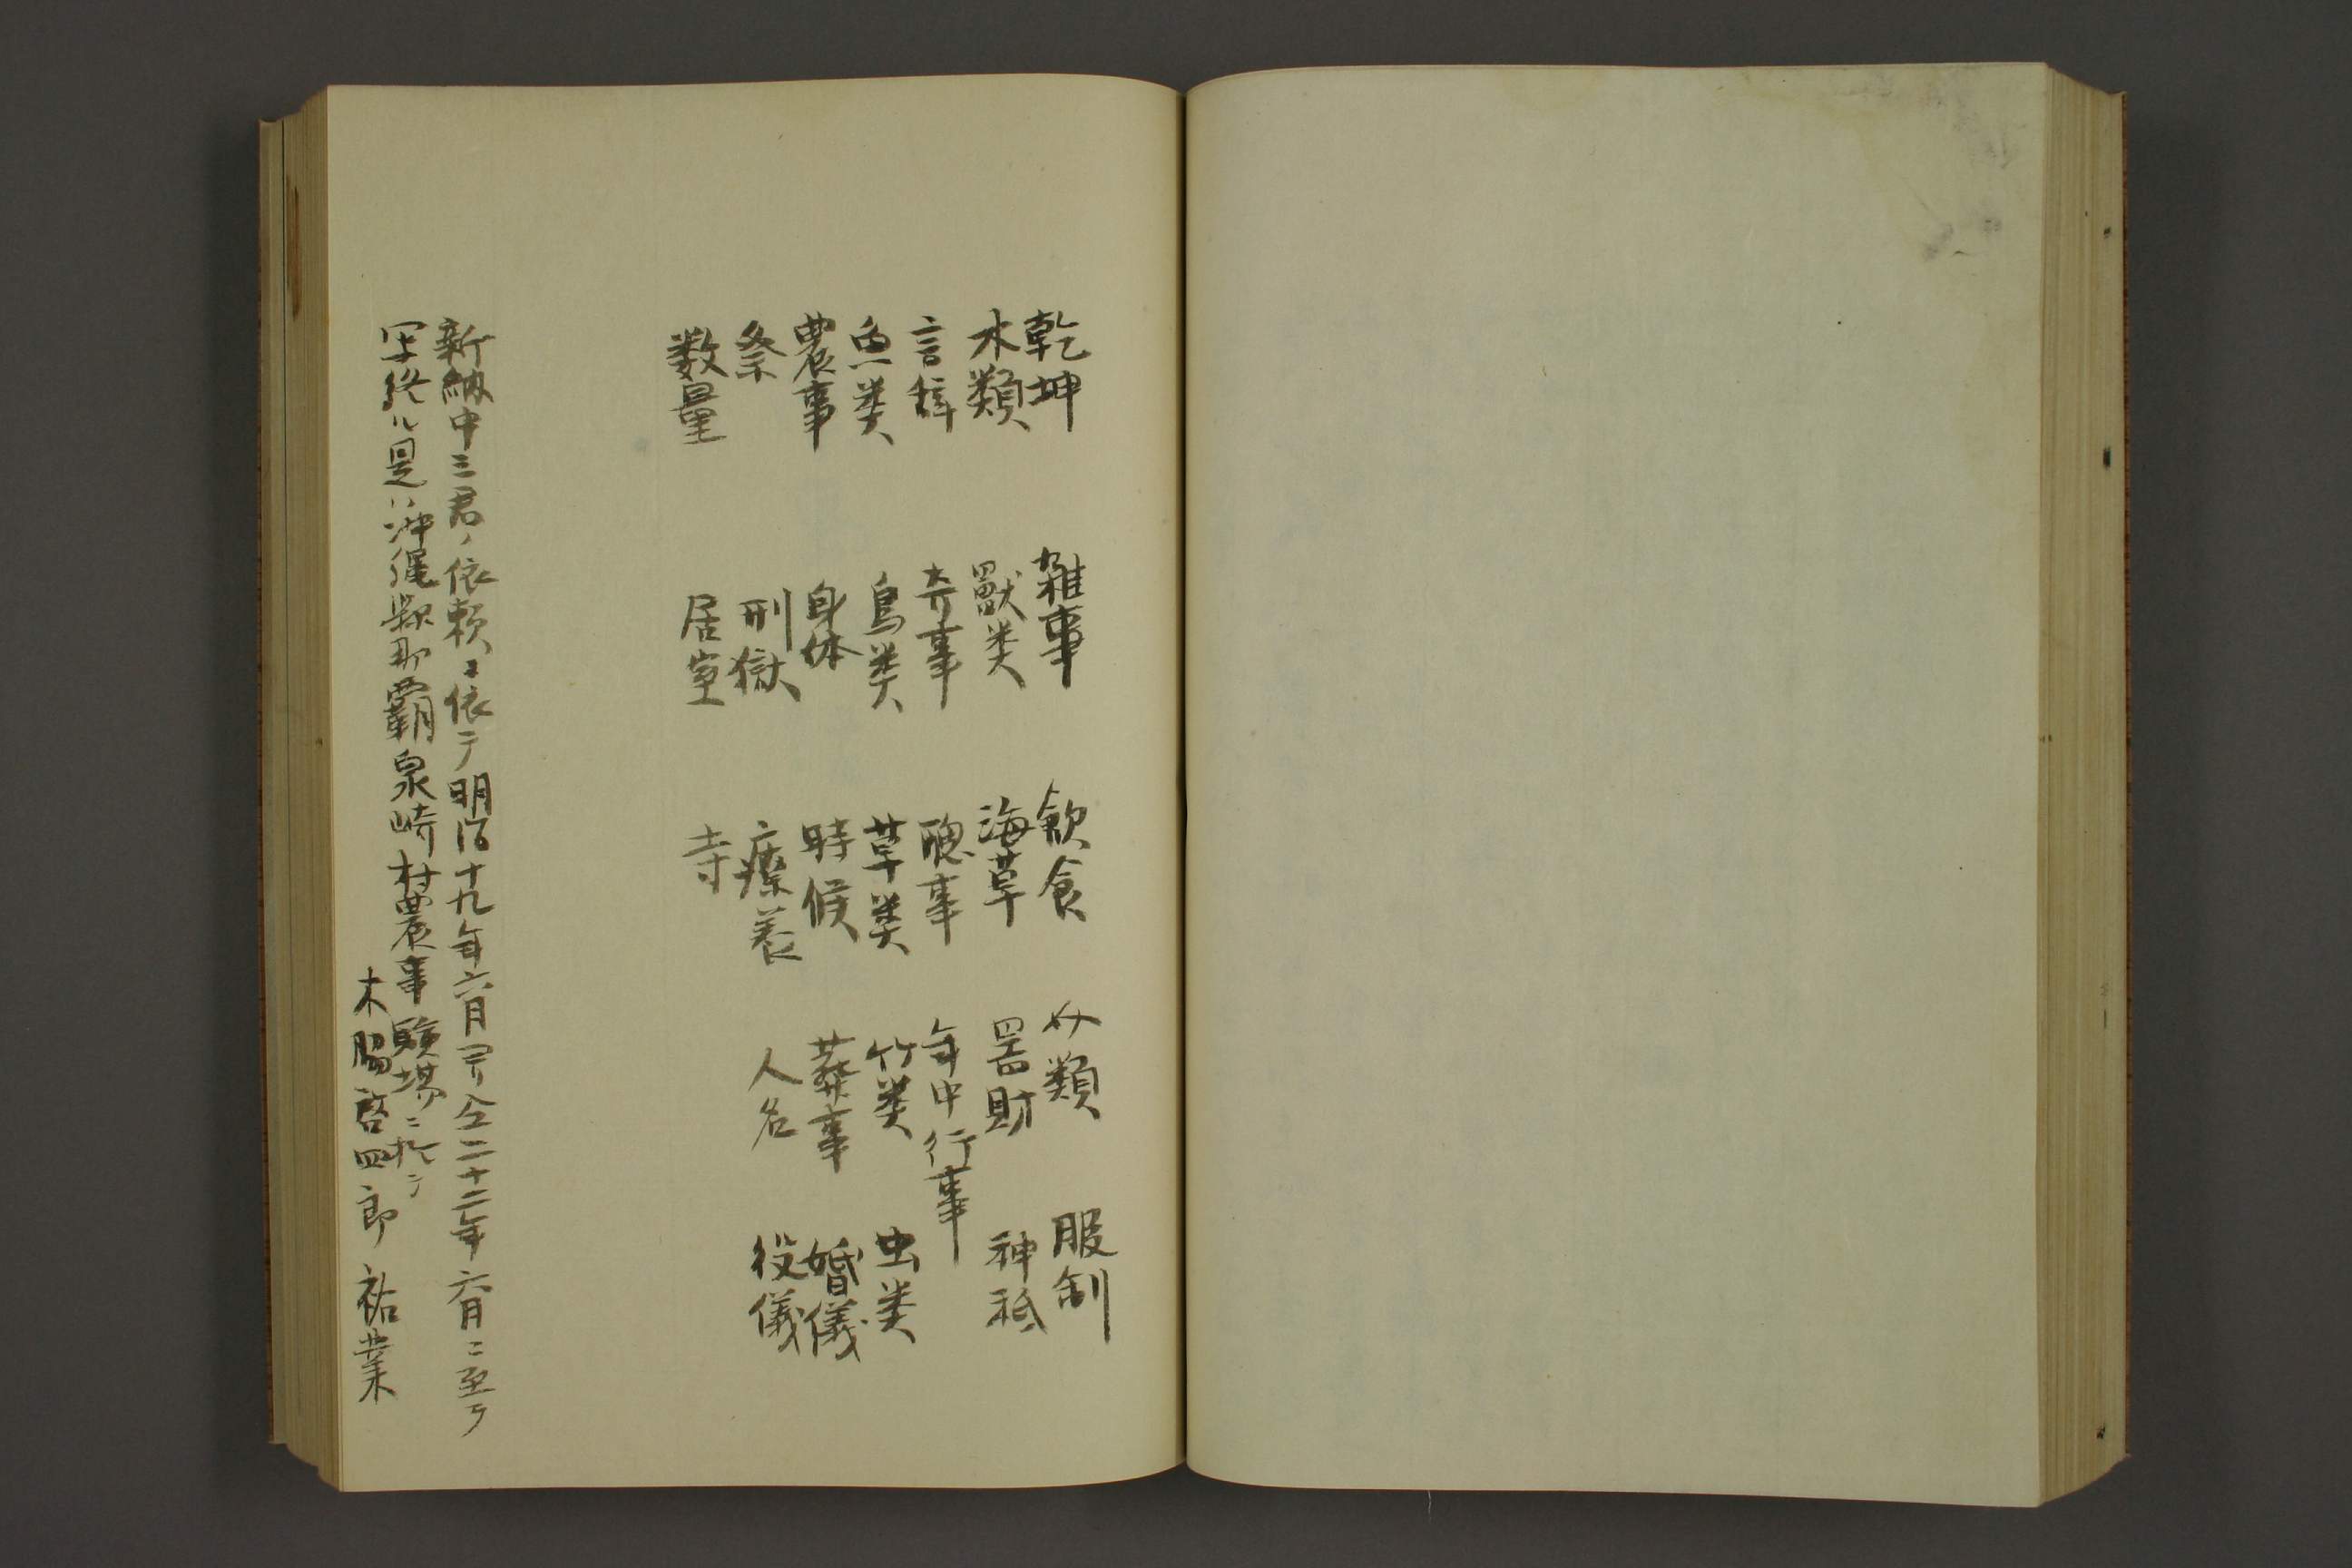 乾坤 雑事 飲食 女類 服制
木類 獣类 海草 器財 神祇
言辞 奇事 聴事 年中行事
魚类 鳥类 草类 竹类 虫类
農事 身体 時候 葬事 婚儀
祭 刑獄 療養 人名 役儀
数量 居室 寺
新納中三君ノ依頼ニ依テ明治十九年六月ヨリ仝二十二年六月ニ至テ
写終ル是ハ沖縄縣那覇泉崎村農事験場ニ於テ
木脇啓四郎 祐業